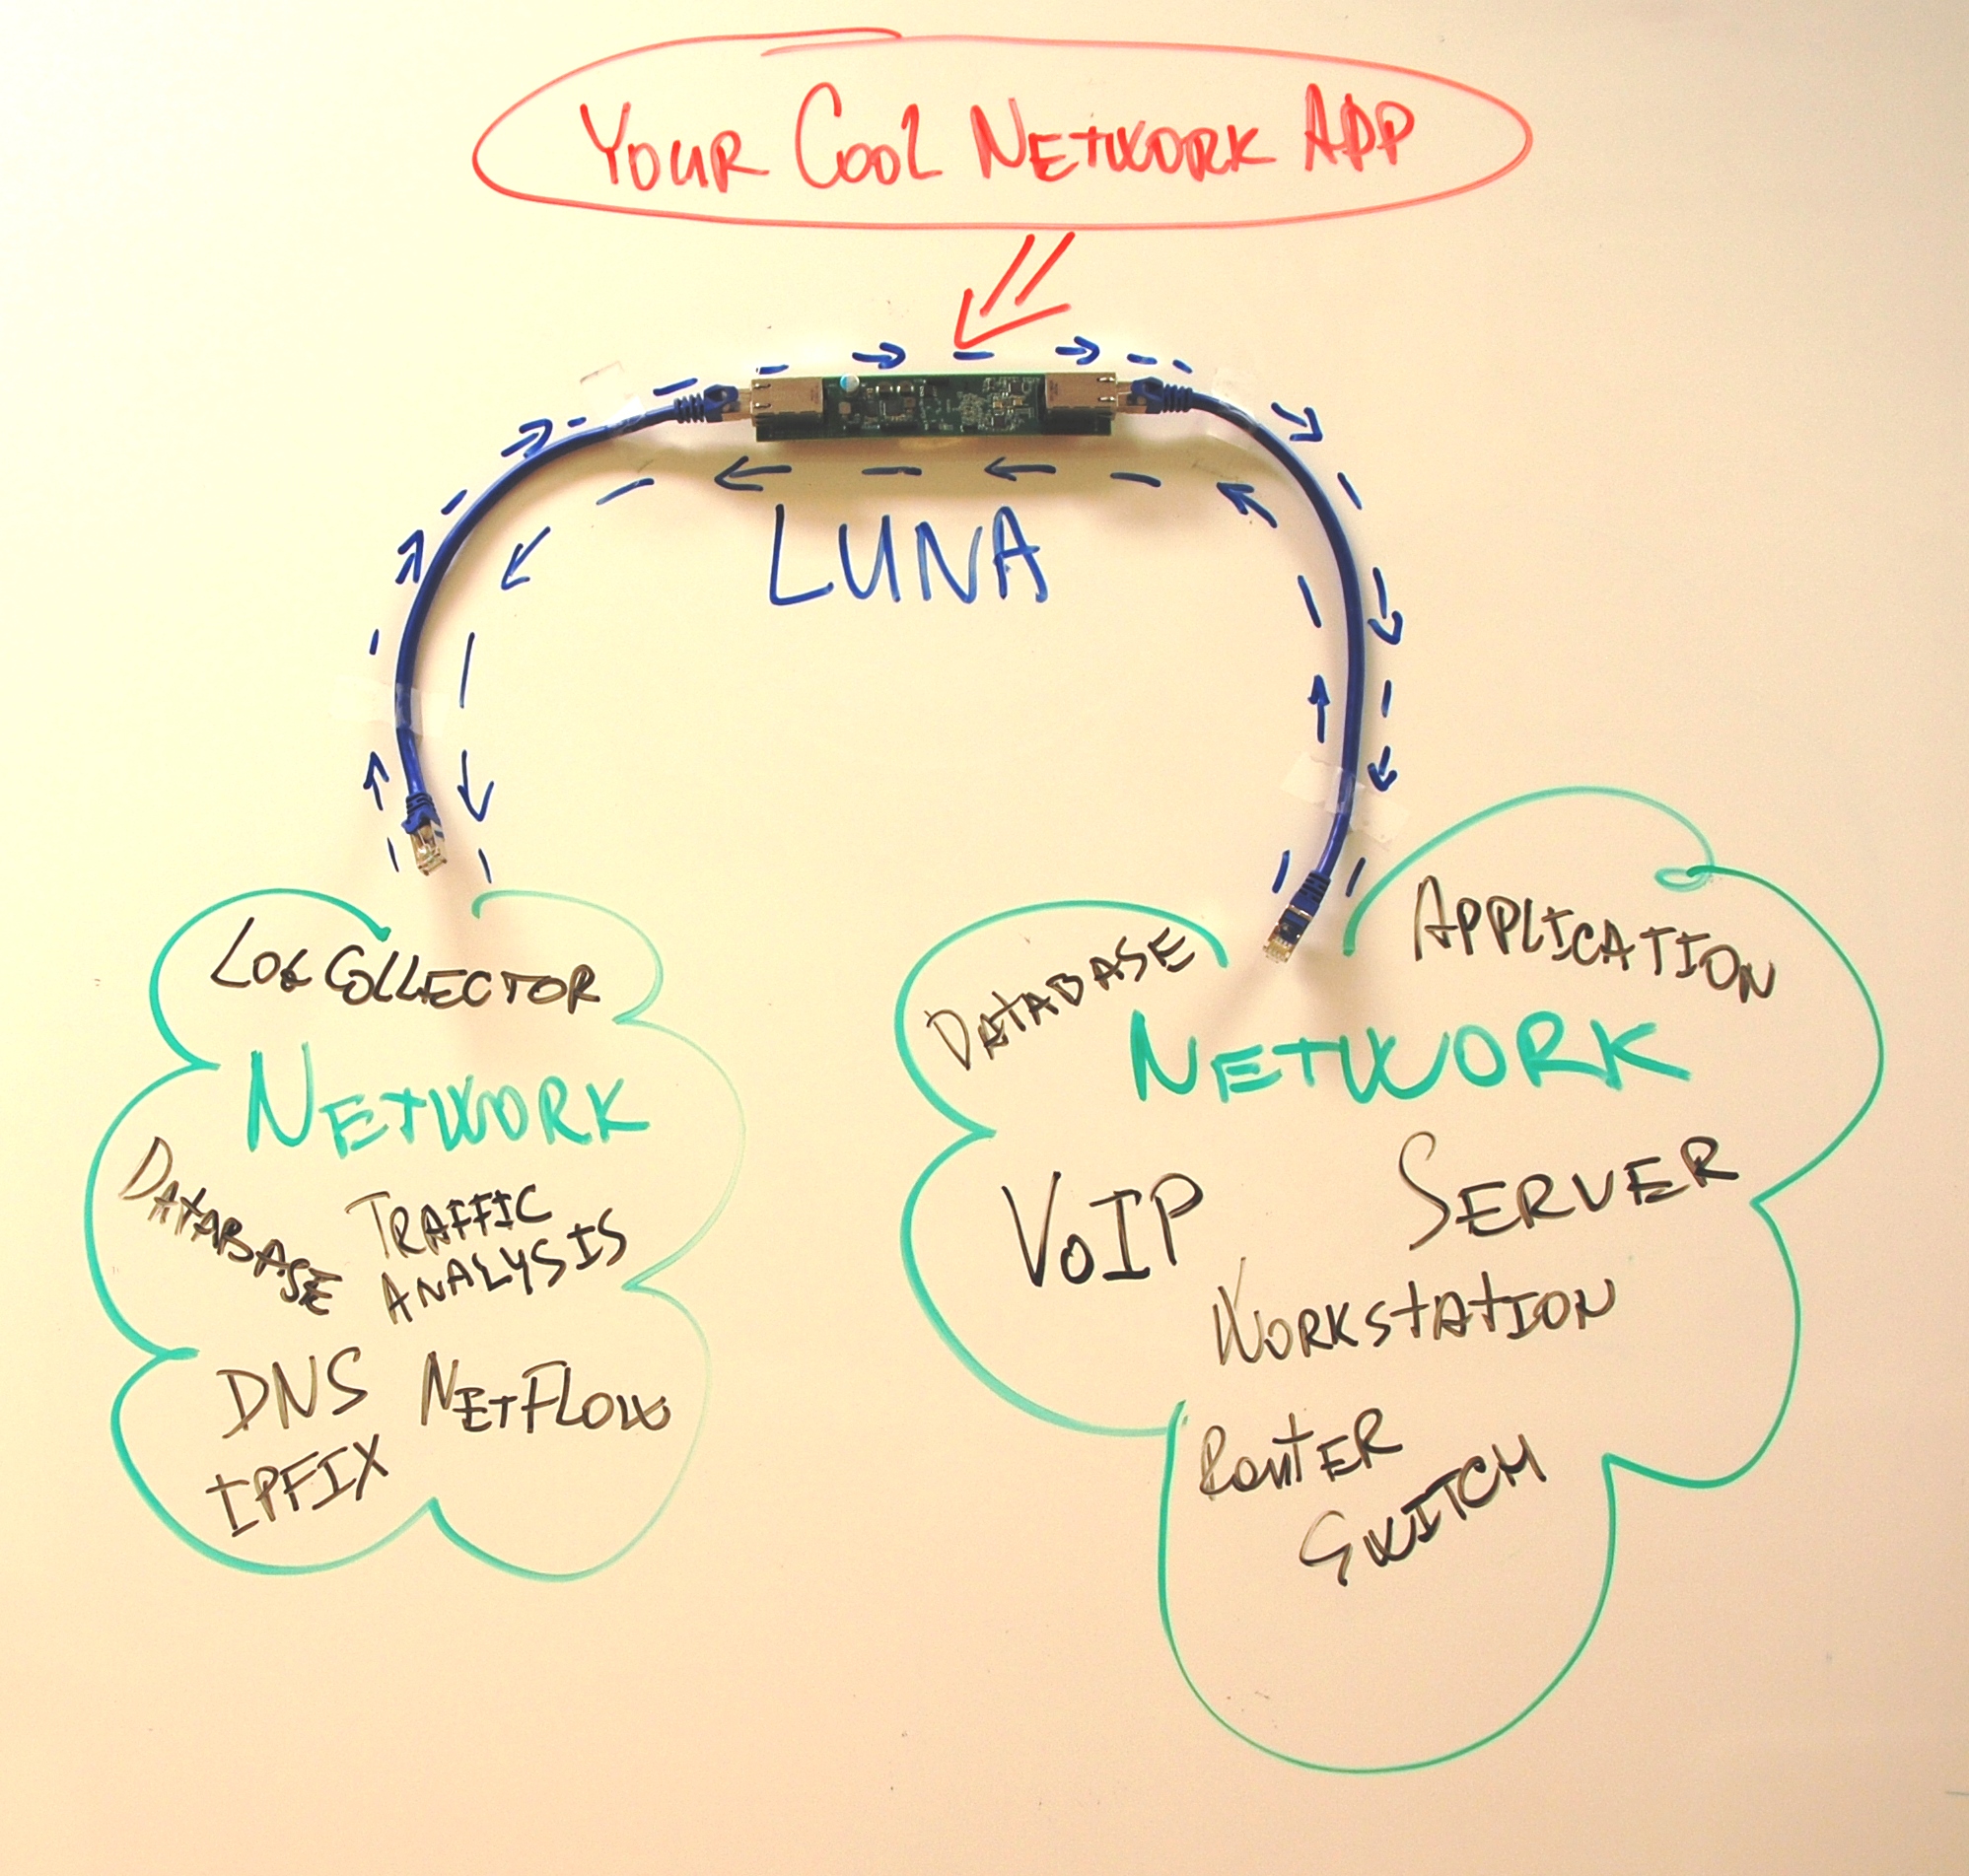 YOUR COOL NETWORK APP
LUNA
LOG COLLECTOR
NETWORK
DATABASE
TRAFFIC
ANALYSIS
DNS NETFLOW
IPFIX
DATABASE
APPLICATION
NETWORK
VoIP
SERVER
WORKSTATION
ROUTER
SWITCH